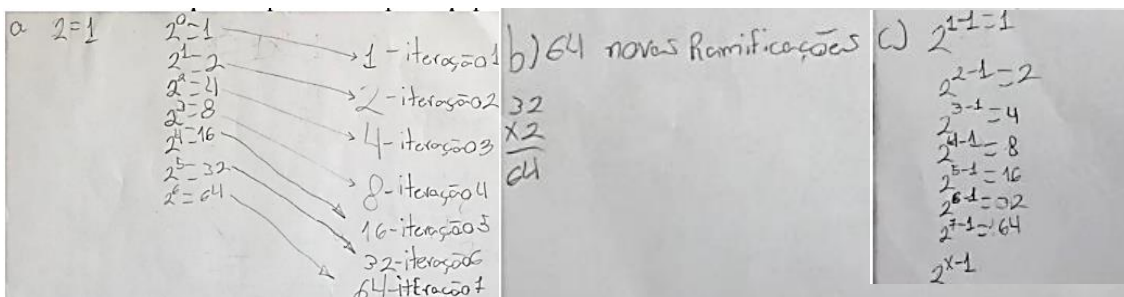 a 2=1
2^0=1
2^1=2
2^2=4
2^3=8
2^4=16
2^5=32
2^6=64
1-iteração1
2-iteração2
4-iteração3
8-iteração4
16-iteração5
32-iteração6
64-itEração7
b) 64 novas Ramificações
32
x2
64
c) 2^1-1=1
2^2-1=2
2^3-1=4
2^4-1=8
2^5-1=16
2^6-1=32
2^7-1=64
2^x-1